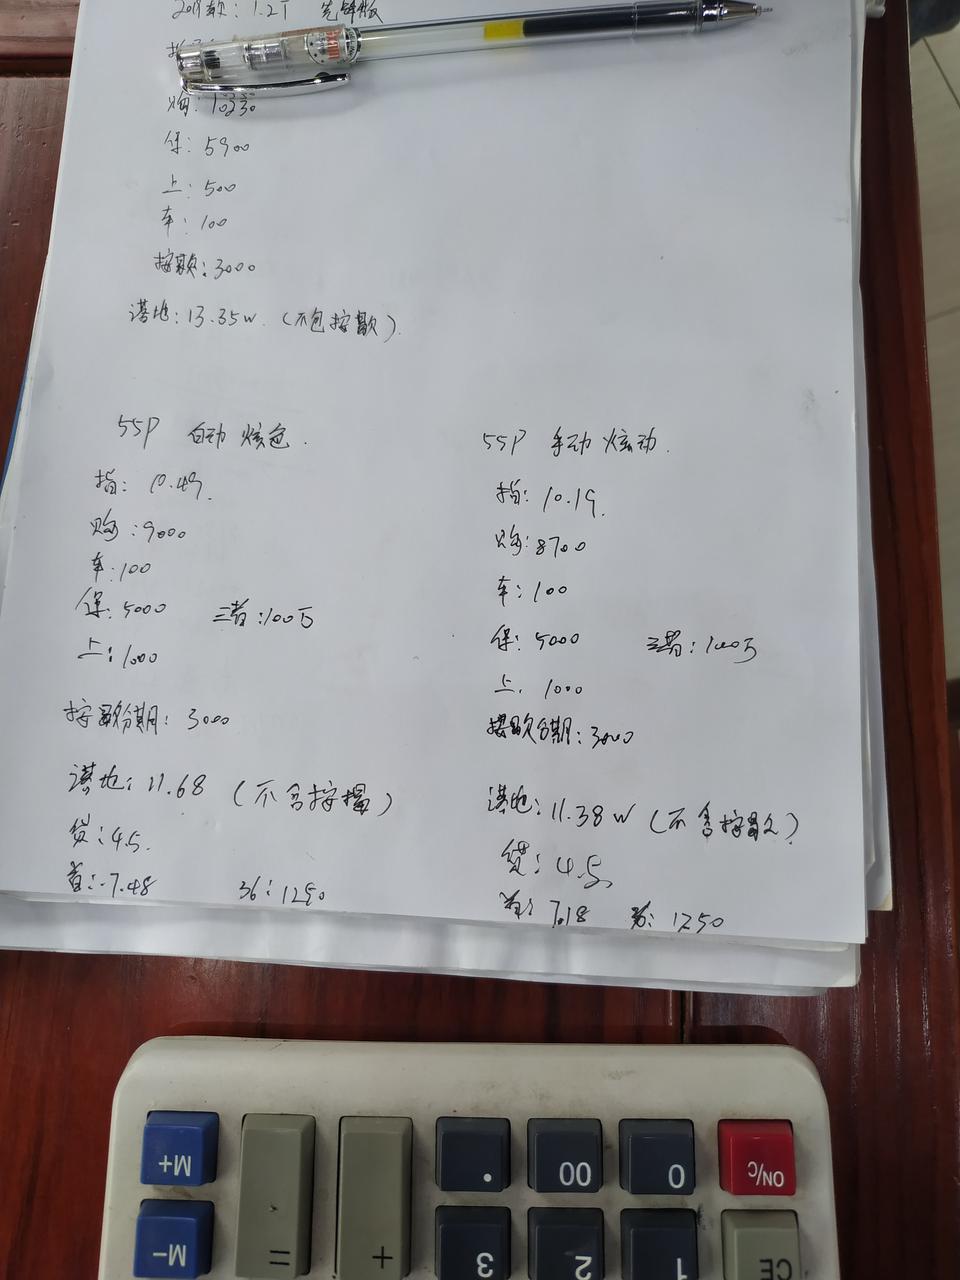 2019款：1.2T 先锋版
购：10230
保：5900
上：500
车：100
按款：3000
落地：13.35w（不包按揭款）
55P 自动 炫色.
指：10.49.
购：9000
车：100
保：5000 三者：100万
上：1000
按揭款分期：3000
落地：11.68（不含按揭）
贷：4.5.
首：7.48 36：1250
55P 手动 炫动.
指：10.19.
购：8700
车：100
保：5000 三者：100万
上：1000
按揭款分期：3000
落地：11.38w（不含按揭款）
贷：4.5
首：7.18 36：1250
M+
=
+
.
00
0
ON/C
M-
3
2
1
CE